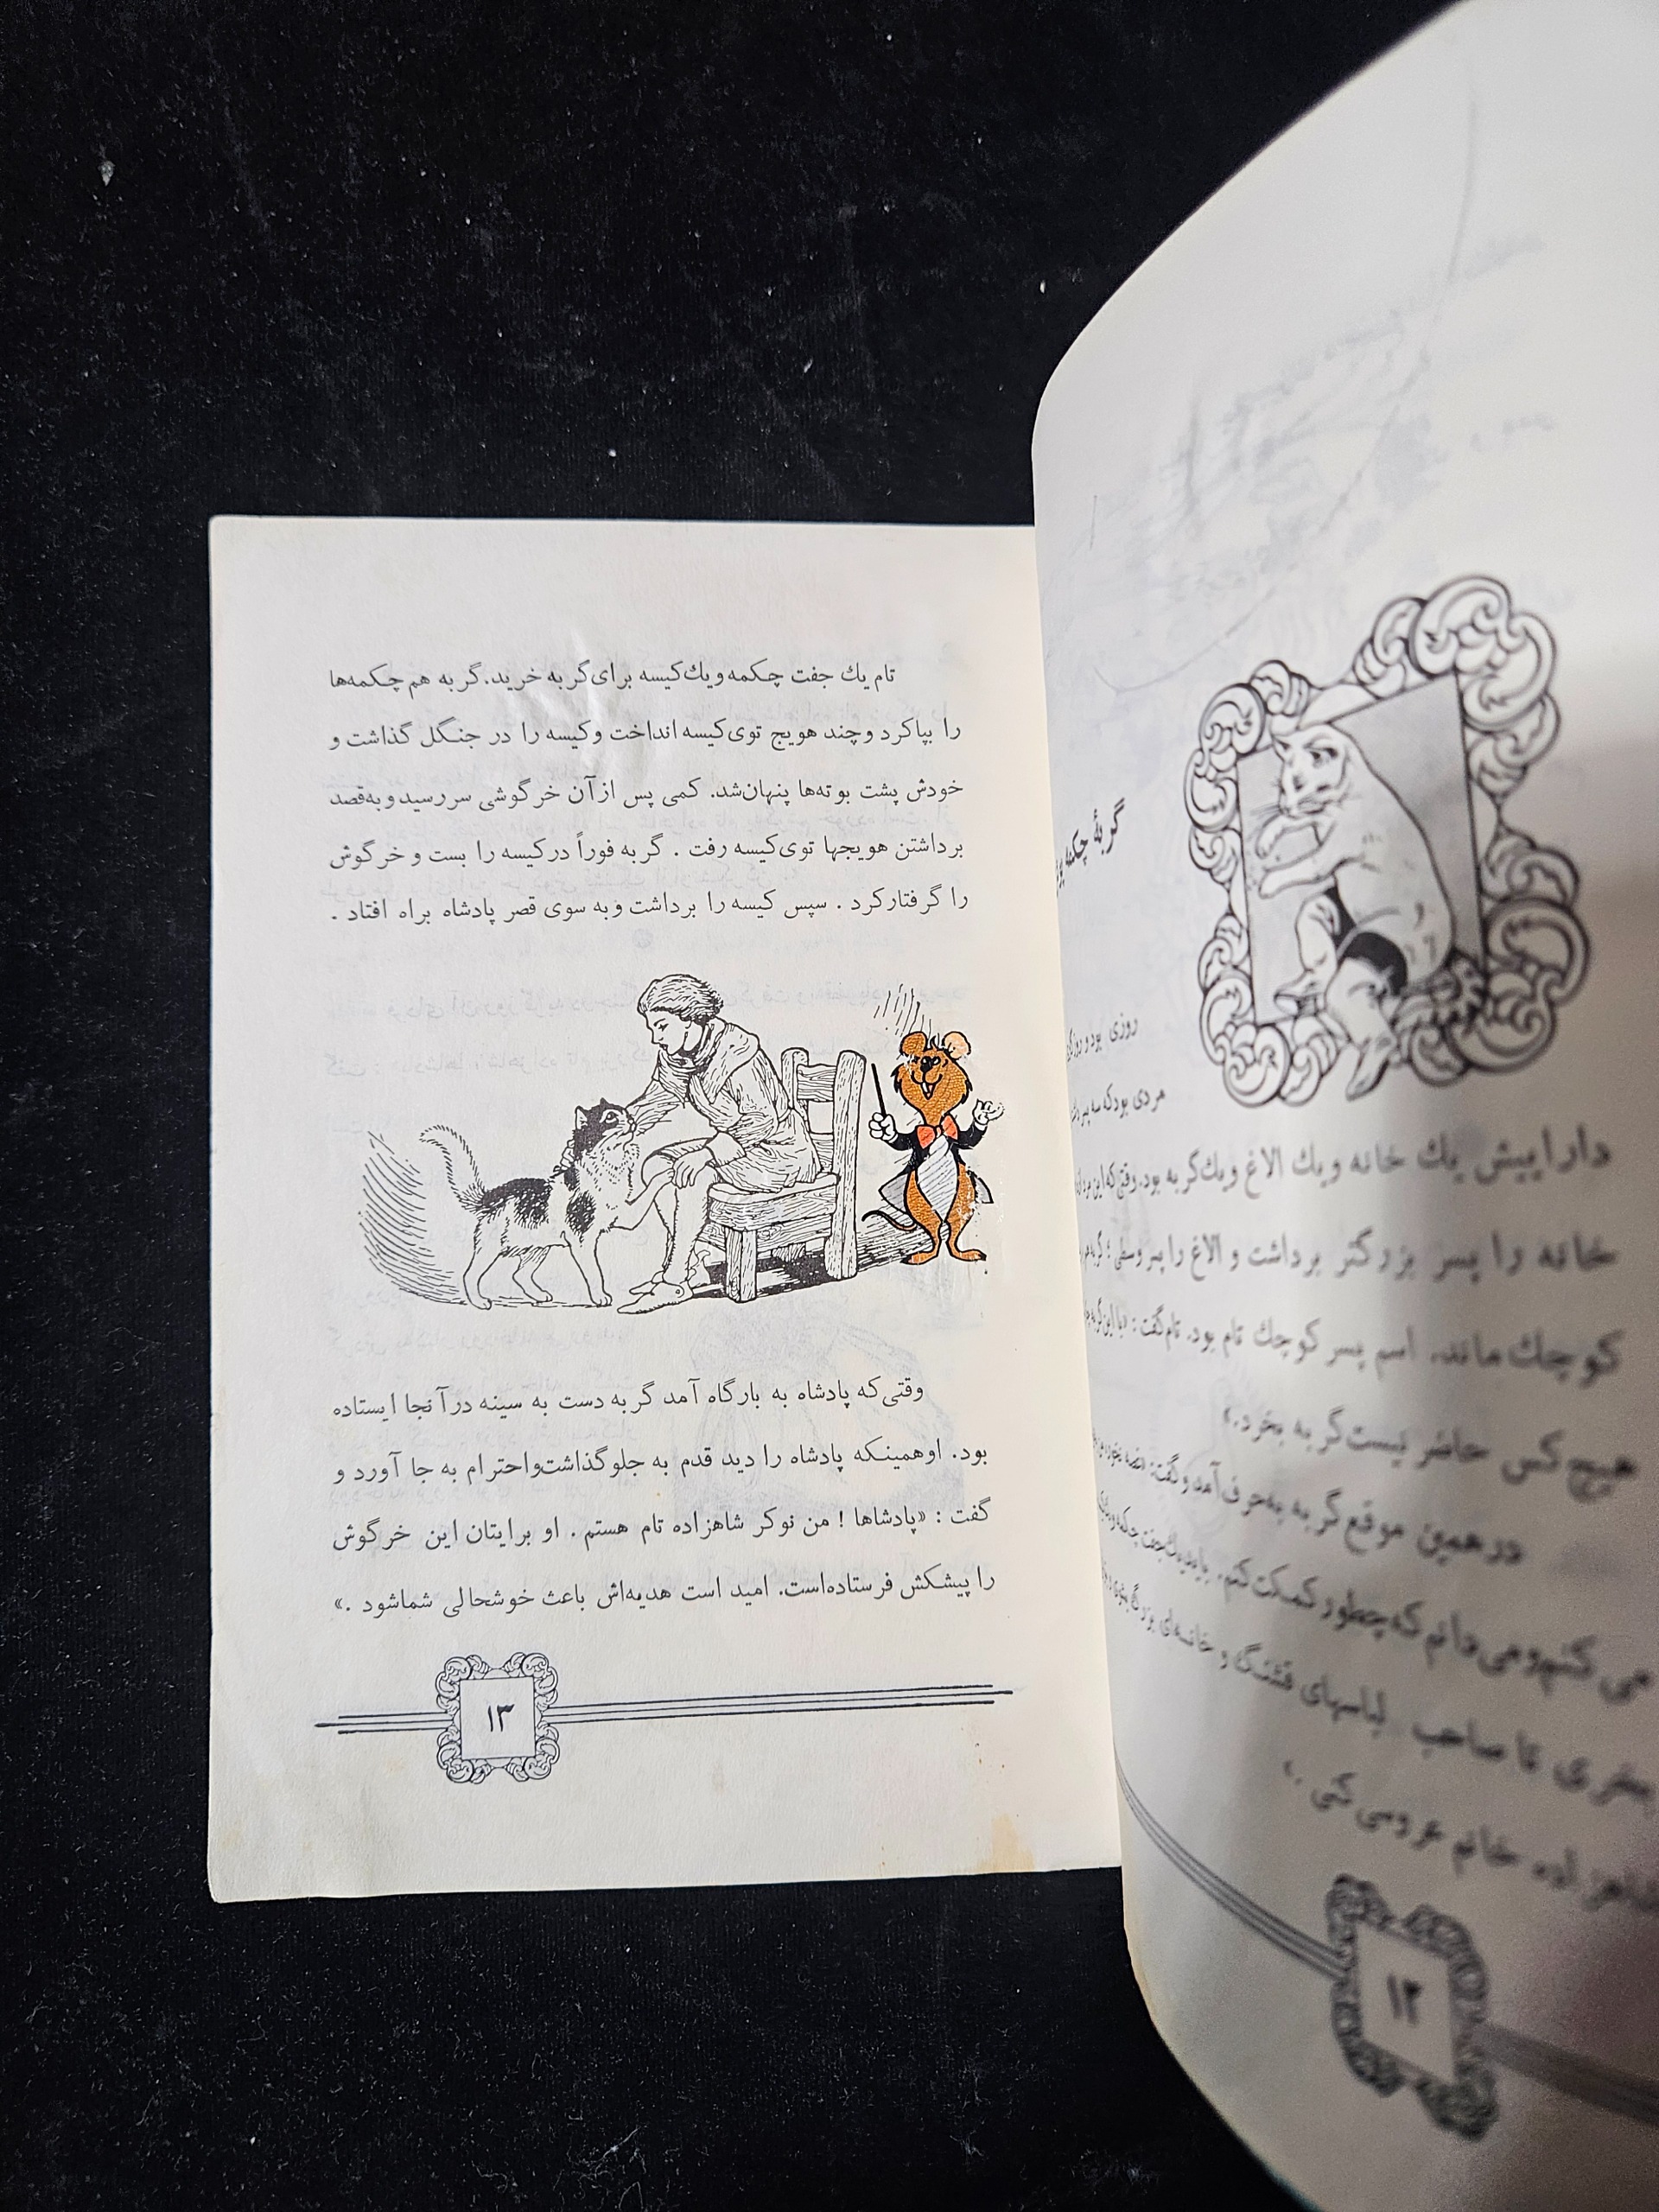 گربهٔ چکمه
روزی بود و روزگاری
مردی بود که سه پسر
داراییش یك خانه ویك الاغ ویك گربه بود. وقتی که این مرد
خانه را پسر بزرگتر برداشت و الاغ را پسر وسطی؛ گربه هم
کوچك ماند. اسم پسر کوچك تام بود. تام گفت: «با این گربه
هیچ کس حاضر نیست گربه بخرد.»
در همین موقع گربه به حرف آمد و گفت: «غصه نخور
می کنم و می دانم که چطور کمکت کنم. باید یك جفت چکمه و
بخری تا صاحب لباسهای قشنگ و خانه ای بزرگ بشوی
شاهزاده خانم عروسی کنی.»
۱۲
تام یك جفت چکمه ویك کیسه برای گربه خرید. گربه هم چکمه‌ها
را بپاکرد وچند هویج توی کیسه انداخت وکیسه را در جنگل گذاشت و
خودش پشت بوته‌ها پنهان شد. کمی پس از آن خرگوشی سررسید و به قصد
برداشتن هویجها توی کیسه رفت . گربه فوراً در کیسه را بست و خرگوش
را گرفتار کرد . سپس کیسه را برداشت و به سوی قصر پادشاه براه افتاد .
وقتی که پادشاه به بارگاه آمد گربه دست به سینه در آنجا ایستاده
بود. او همینکه پادشاه را دید قدم به جلو گذاشت و احترام به جا آورد و
گفت : «پادشاها ! من نوکر شاهزاده تام هستم . او برایتان این خرگوش
را پیشکش فرستاده است. امید است هدیه‌اش باعث خوشحالی شما شود .»
۱۳